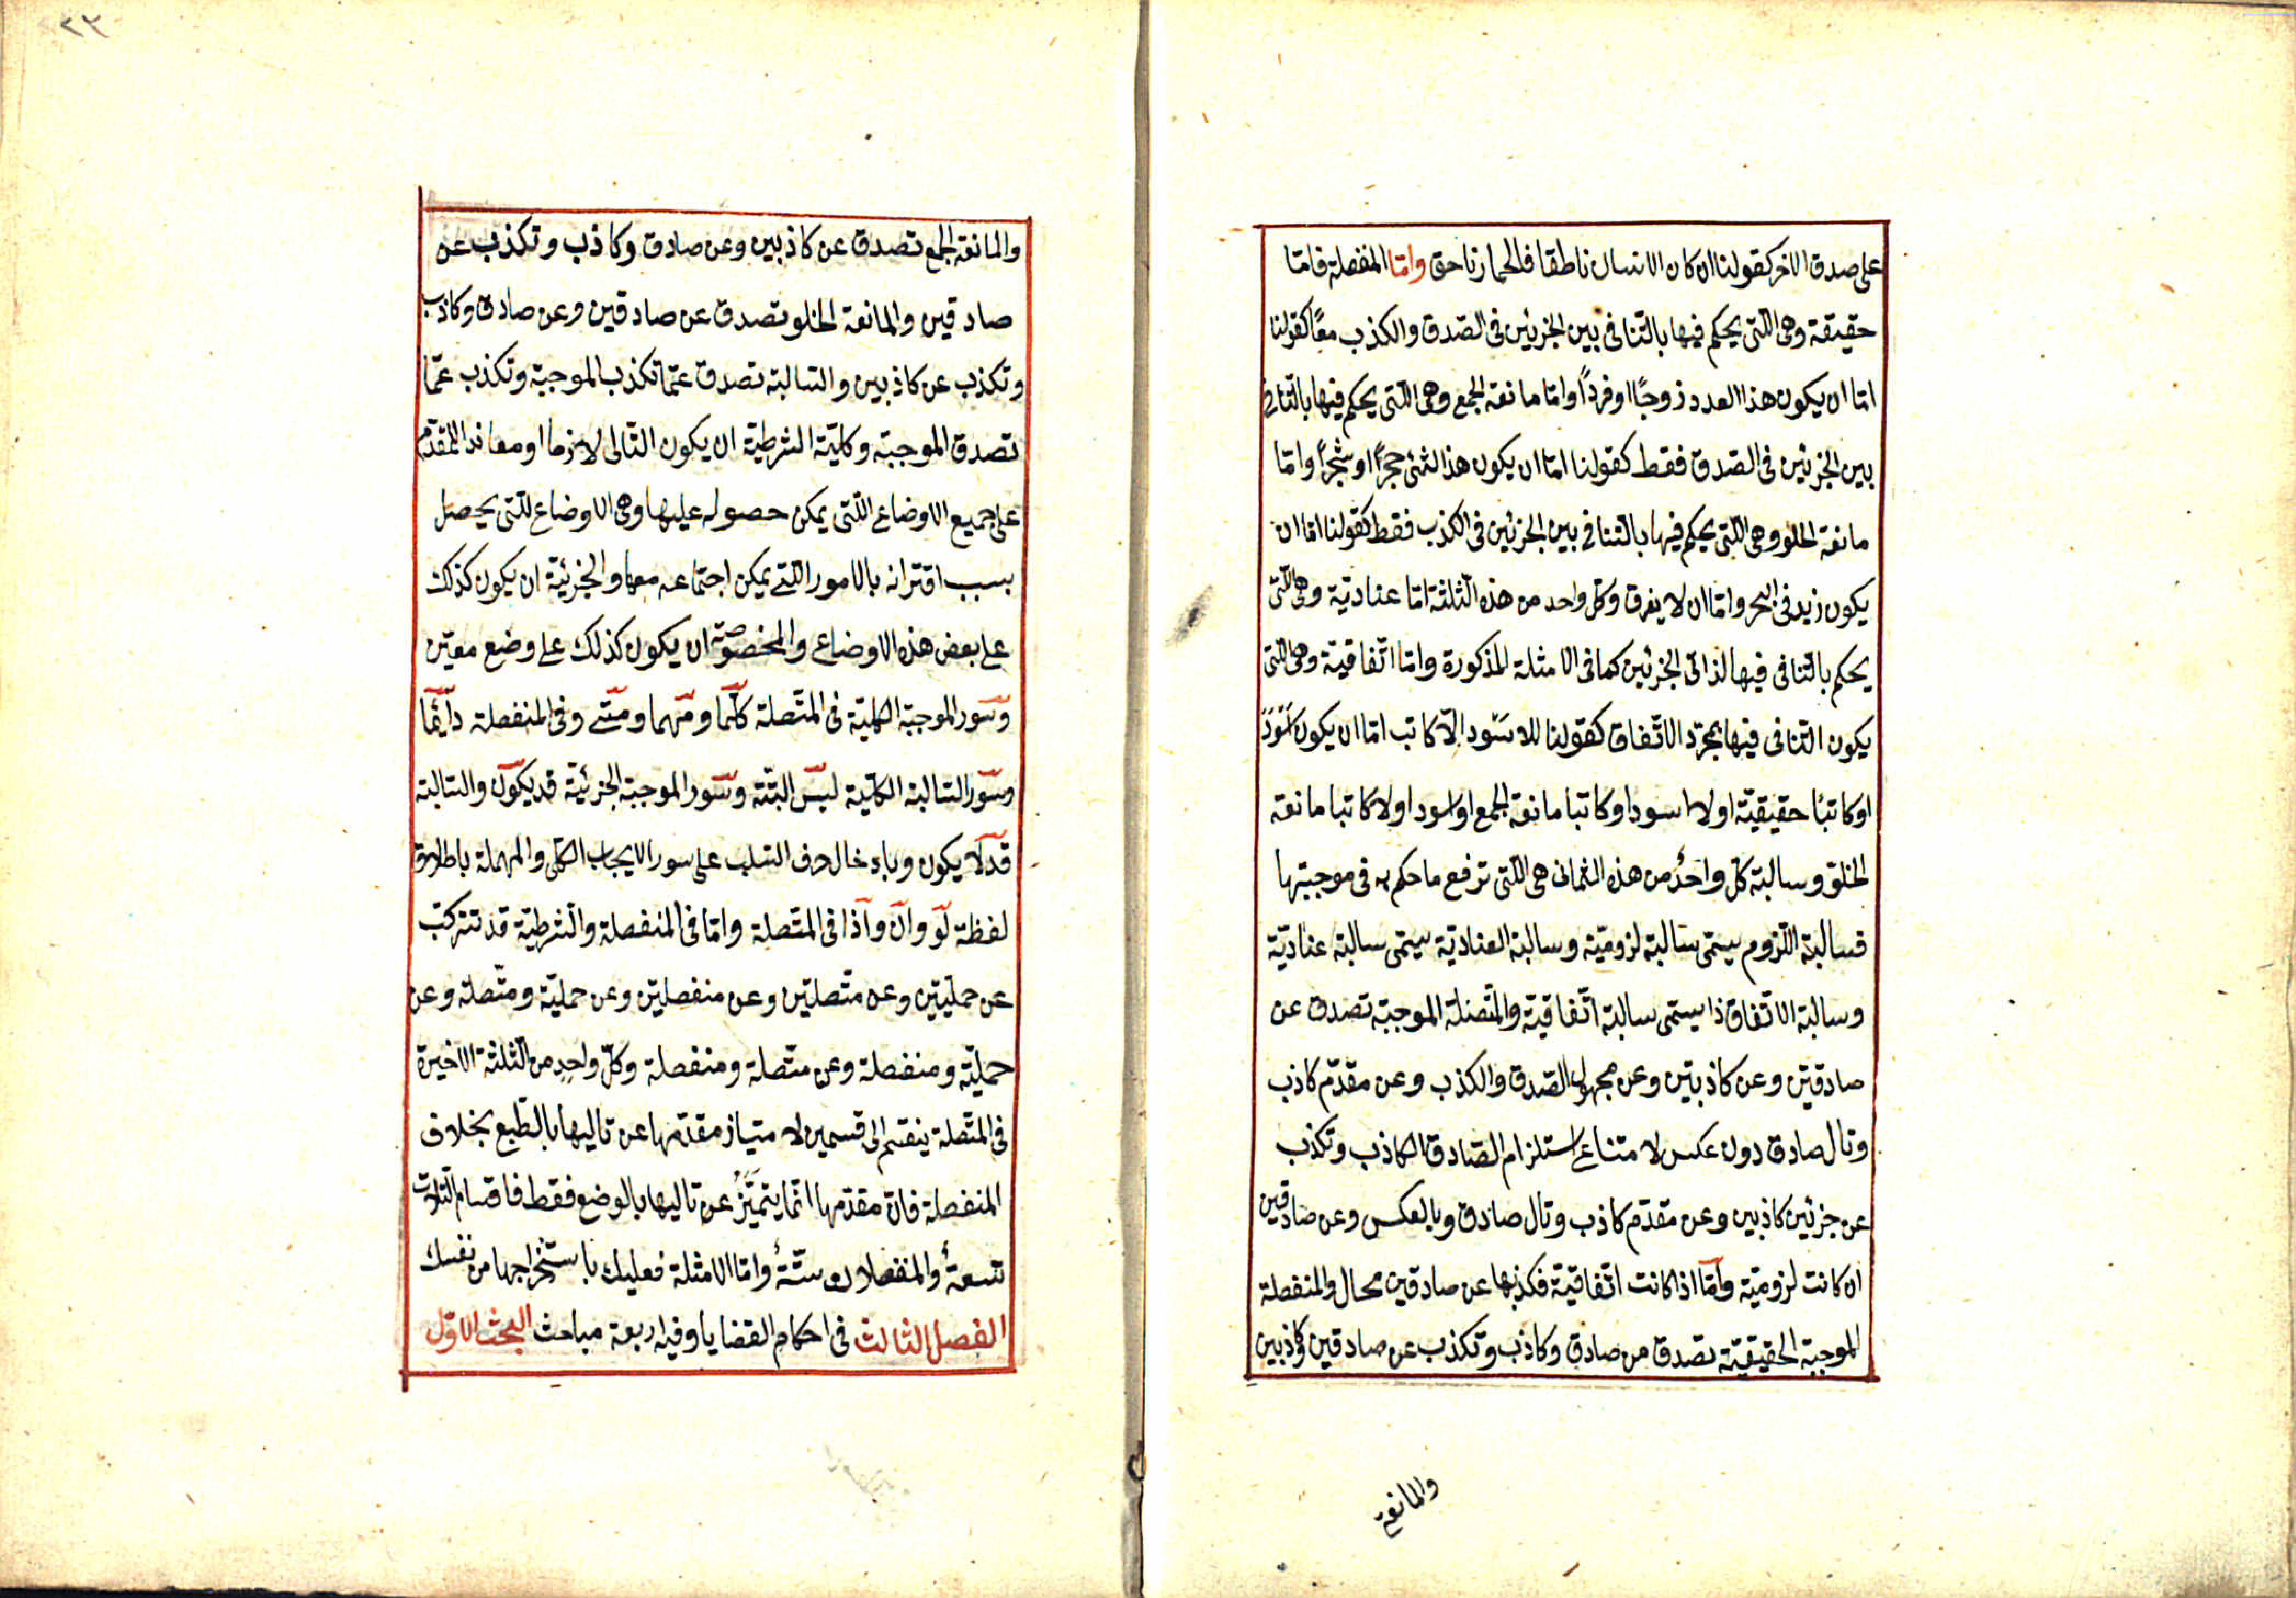 على صدق الاخر كقولنا ان كان الانسان ناطقا فالحمار ناحق وامّا المنفصلة فامّا
حقيقة وهى اللتى يحكم فيها بالتنافى بين الجزئين فى الصّدق والكذب معًا كقولنا
امّا ان يكون هذا العدد زوجًا او فردًا وامّا مانعة الجمع وهى اللتى يحكم فيها بالتنافى
بين الجزئين فى الصّدق فقط كقولنا امّا ان يكون هذا الشئ حجرًا او شجرًا وامّا
مانعة الخلو وهى اللتى يحكم فيها بالتنافى بين الجزئين فى الكذب فقط كقولنا امّا ان
يكون زيد فى البحر وامّا ان لا يغرق وكلّ واحد من هذه الثلثة امّا عناديّة وهى اللتى
يحكم بالتنافى فيها لذاتى الجزئين كما فى الامثلة المذكورة وامّا اتّفاقيّة وهى اللتى
يكون التنافى فيها بمجرّد الاتّفاق كقولنا للاسود الّا كاتب امّا ان يكون اسود
او كاتبًا حقيقيّة او لا اسود او كاتبا مانعة الجمع او اسود او لا كاتبا مانعة
الخلوّ وسالبة كلّ واحدٌ من هذه الثمانى هى اللتى ترفع ما حكم به فى موجبتها
فسالبة اللّزوم يسمّى سالبة لزوميّة وسالبة العناديّة يسمّى سالبة عناديّة
وسالبة الاتّفاق ذا يسمّى سالبة اتّفاقيّة والمتّصلة الموجبة تصدق عن
صادقين وعن كاذبتين وعن مجهول الصّدق والكذب وعن مقدّم كاذب
وتال صادق دون عكس لا متناع استلزام الصّادق الكاذب وتكذب
عن جزئين كاذبين وعن مقدّم كاذب وتال صادق وبالعكس وعن صادقين
ان كانت لزوميّة وامّا اذا كانت اتّفاقيّة فكذبها عن صادقين محال والمنفصلة
الموجبة الحقيقيّة تصدق من صادق وكاذب وتكذب عن صادقين وكاذبين
والمانعة
٢٣
والمانعة الجمع تصدق عن كاذبين وعن صادق وكاذب وتكذب عن
صادقين والمانعة الخلو تصدق عن صادقين وعن صادق وكاذب
وتكذب عن كاذبين والسّالبة تصدق عمّا تكذب الموجبة وتكذب عمّا
تصدق الموجبة وكليّة الشرطيّة ان يكون التّالى لازما او معاندا للمقدّم
على جميع الاوضاع اللتى يمكن حصوله عليها وهى الاوضاع للتى يحصل
بسبب اقترانه بالامور اللتى يمكن اجتماعه معها والجزئيّة ان يكون كذلك
على بعض هذه الاوضاع والمخصوصة ان يكون كذلك على وضع معيّن
وسور الموجبة الكليّة فى المتّصلة كلّما ومهما ومتى وفى المنفصلة دائمًا
وسور السّالبة الكليّة ليس البتّة وسور الموجبة الجزئيّة قد يكون والسّالبة
قد لا يكون وبادخال حرف السّلب على سور الايجاب الكلّى والمهملة باطلاق
لفظة لو وان واذا فى المتّصلة وامّا فى المنفصلة والشرطيّة قد تتركّب
عن حمليّتين وعن متّصلتين وعن منفصلتين وعن حمليّة ومتّصلة وعن
حمليّة ومنفصلة وعن متّصلة ومنفصلة وكلّ واحدٍ من الثلثة الاخيرة
فى المتّصلة ينقسم الى قسمين لامتياز مقدّمها عن تاليها بالطّبع بخلاف
المنفصلة فانّ مقدّمها انّما يتميّزُ عن تاليها بالوضع فقط فاقسام المتّصلات
تسعةٌ والمنفصلات ستّةٌ وامّا الامثلة فعليك باستخراجها من نفسك
الفصل الثالث فى احكام القضايا وفيه اربعة مباحث البحث الاوّل